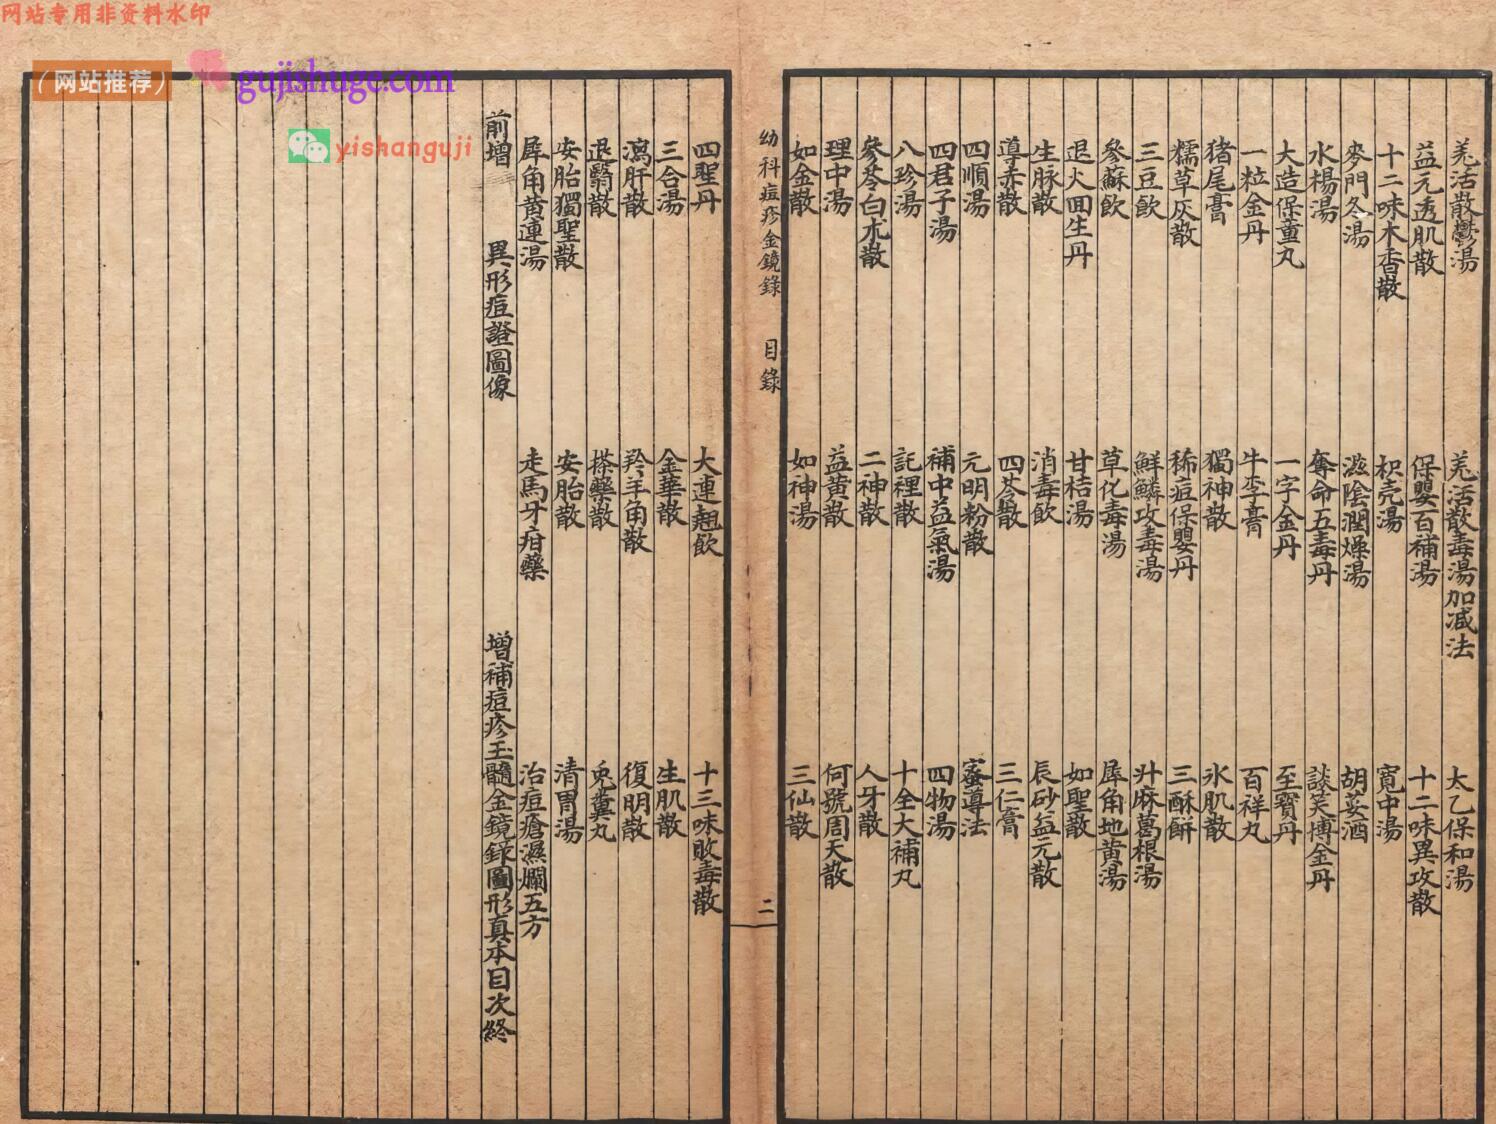 网站专用非资料水印
（网站推荐）
gujishuge.com
yishanguji
羌活散鬱湯 羌活散毒湯加减法 太乙保和湯
益元透肌散 保嬰百補湯 十二味異攻散
十二味木香散 枳壳湯 寬中湯
麥門冬湯 滋陰潤燥湯 胡荽酒
水楊湯 奪命五毒丹 談笑博金丹
大造保童丸 一字金丹 至寳丹
一粒金丹 牛李膏 百祥丸
猪尾膏 獨神散 氷肌散
糯草灰散 稀痘保嬰丹 三酥餅
三豆飲 鮮鱗攻毒湯 升麻葛根湯
參蘇飲 草化毒湯 犀角地黄湯
退火回生丹 甘桔湯 如聖散
生脉散 消毒飲 辰砂益元散
導赤散 四苓散 三仁膏
四順湯 元明粉散 蜜導法
四君子湯 補中益氣湯 四物湯
八珍湯 託裡散 十全大補丸
參苓白朮散 二神散 人牙散
理中湯 益黄散 何號周天散
如金散 如神湯 三仙散
幼科痘疹金鏡錄 目錄 二
四聖丹 大連翹飲 十三味敗毒散
三合湯 金華散 生肌散
瀉肝散 羚羊角散 復明散
退翳散 搽藥散 兎糞丸
安胎獨聖散 安胎散 清胃湯
犀角黄連湯 走馬牙疳藥 治痘瘡濕爛五方
前增 異形痘證圖像 增補痘疹玉髓金鏡錄圖形真本目次終